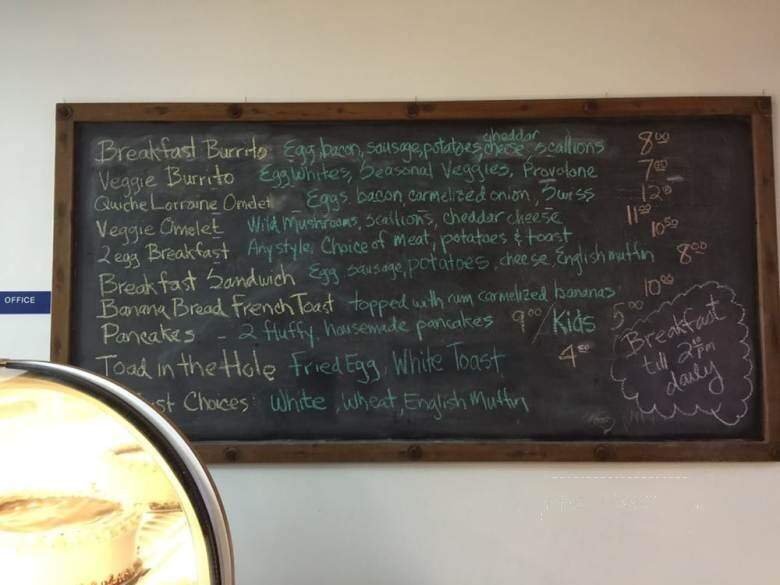 OFFICE
Breakfast Burrito Egg, bacon, sausage, potatoes, cheddar cheese, scallions 8.00
Veggie Burrito Egg Whites, Seasonal Veggies, Provolone 7.00
Quiche Lorraine Omelet Eggs, bacon, carmelized onion, Swiss 12.00
Veggie Omelet Wild Mushrooms, scallions, cheddar cheese 11.00
2 egg Breakfast Any style, Choice of meat, potatoes & toast 10.50
Breakfast Sandwich Egg, sausage, potatoes, cheese, English muffin 8.00
Banana Bread French Toast topped with rum carmelized bananas 10.00
Pancakes - 2 fluffy, housemade pancakes 9.00 / Kids 5.00
Toad in the Hole Fried Egg, White Toast 4.00
Choices: White, Wheat, English Muffin
Breakfast
till 2 PM
daily